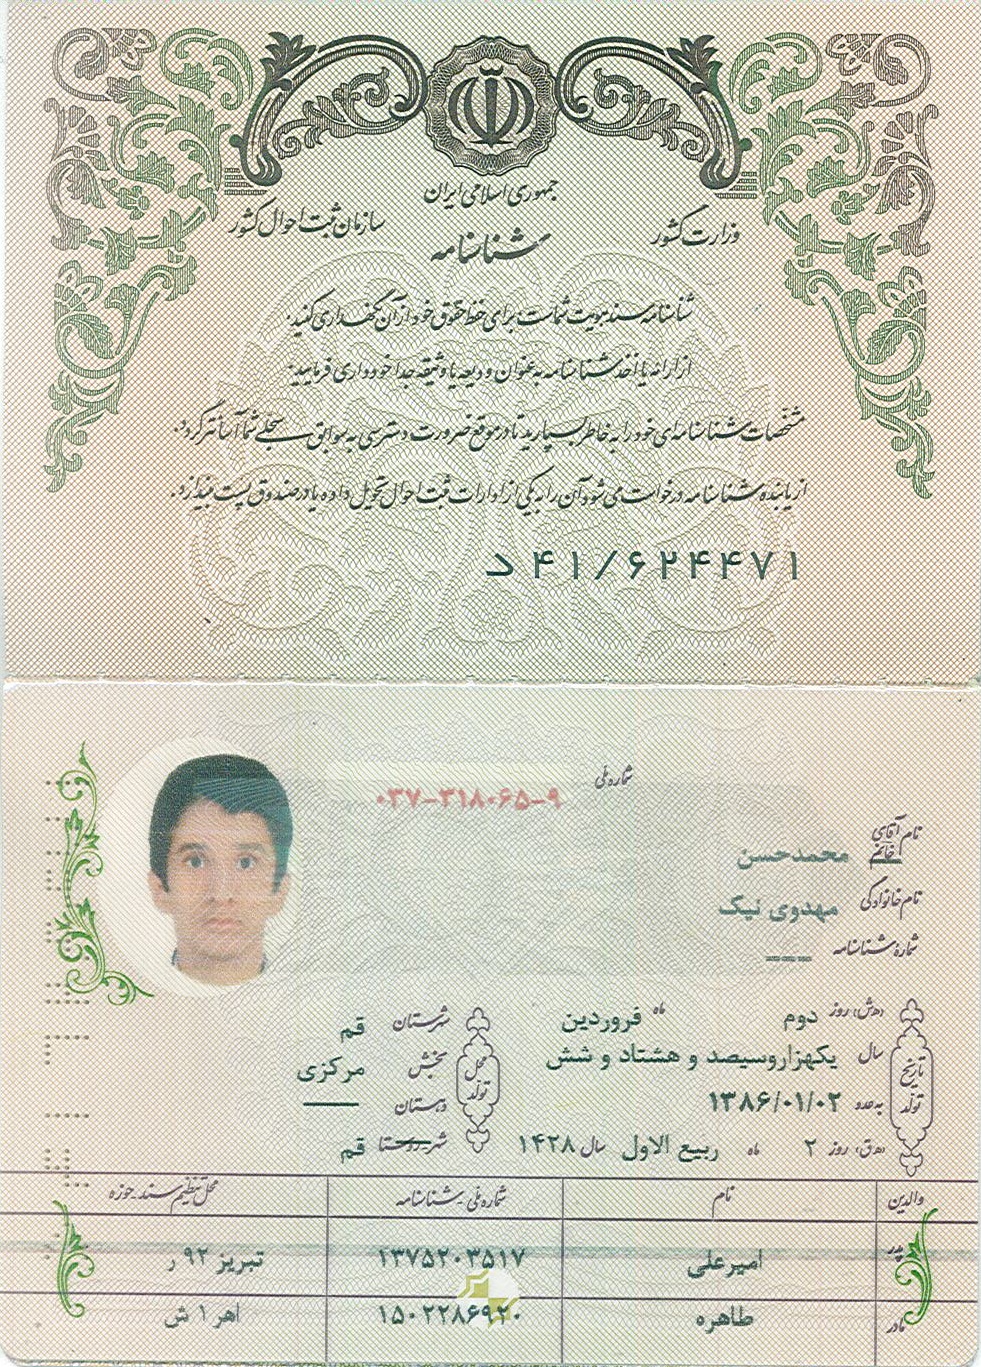 جمهوری اسلامی ایران
وزارت کشور
سازمان ثبت احوال کشور
شناسنامه
شناسنامه سند هویت شماست برای حفظ حقوق خود از آن نگهداری کنید.
از ارائه یا اخذ شناسنامه به عنوان ودیعه یا وثیقه جدا خودداری فرمایید.
مشخصات شناسنامه‌ای خود را به خاطر بسپارید تا در موقع ضرورت دسترسی به سوابق سجلی شما آسانتر گردد.
از یابنده شناسنامه درخواست می شود آن را به یکی از ادارات ثبت احوال تحویل داده یا در صندوق پست بیندازد.
د ۴۱/۶۲۴۴۷۱
شماره ملی
۰۳۷-۳۱۸۰۶۵-۹
نام آقای خانم محمدحسن
نام خانوادگی مهدوی نیک
شماره شناسنامه ---
تاریخ تولد
(ه‍.ش) روز دوم ماه فروردین
سال یکهزاروسیصد و هشتاد و شش
به عدد ۱۳۸۶/۰۱/۰۲
(ه‍.ق) روز ۲ ماه ربیع الاول سال ۱۴۲۸
محل تولد
شهرستان قم
بخش مرکزی
دهستان ——
شهر-روستا قم
والدین نام شماره ملی-شناسنامه محل تنظیم سند-حوزه
پدر امیرعلی ۱۳۷۵۲۰۳۵۱۷ تبریز ۹۲ ر
مادر طاهره ۱۵۰۲۲۸۶۹۲۰ اهر ۱ ش